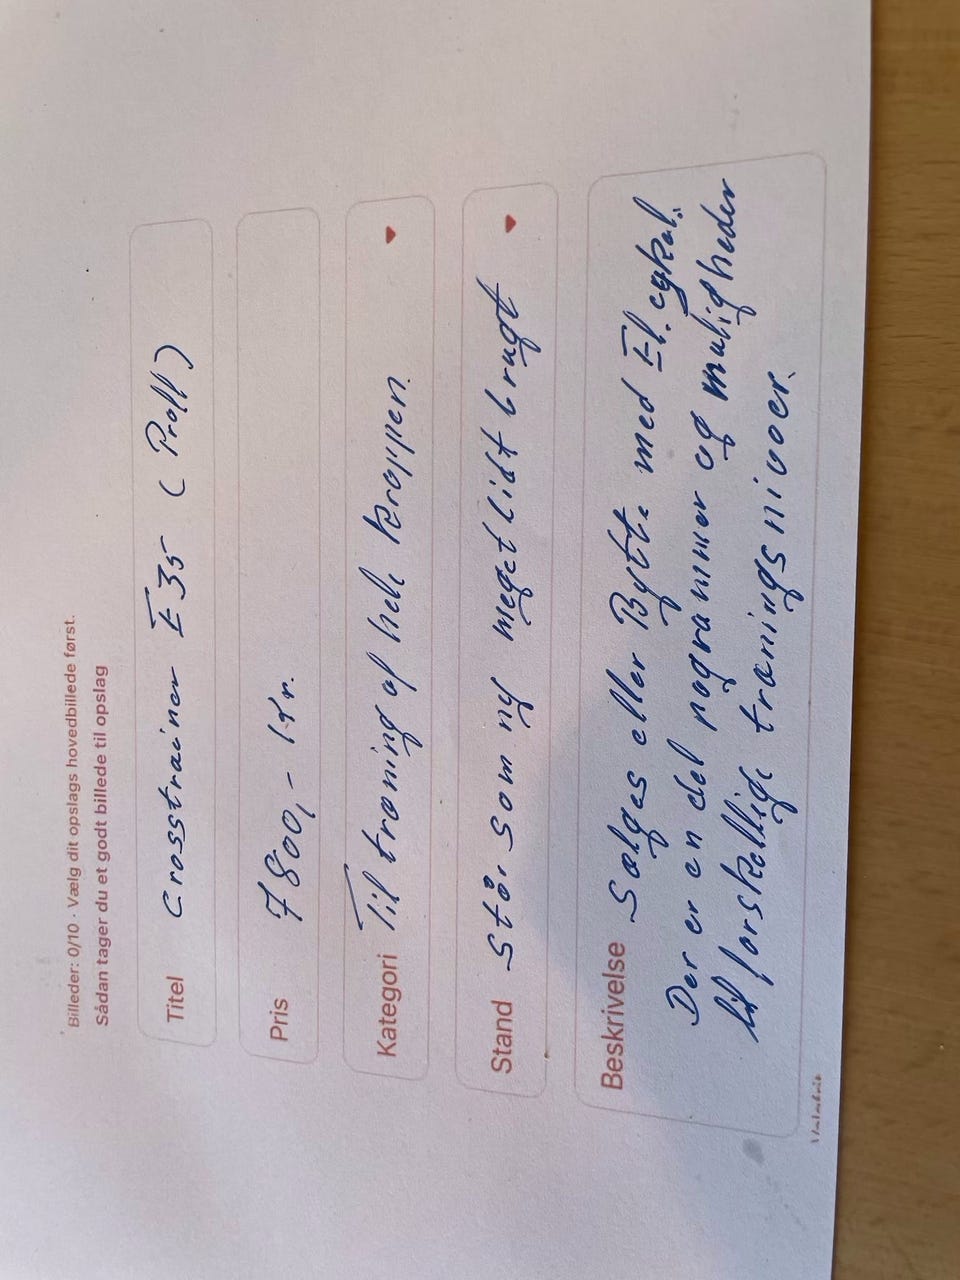 Billeder: 0/10 · Vælg dit opslags hovedbillede først.
Sådan tager du et godt billede til opslag
Titel crosstrainer E35 (Proff)
Pris 7800,- kr.
Kategori Til træning af hele kroppen.
Stand står som ny meget lidt brugt
Beskrivelse Sælges eller Bytte med El. cykel.
Der er en del programmer og muligheder
til forskellige trænings nivoer.